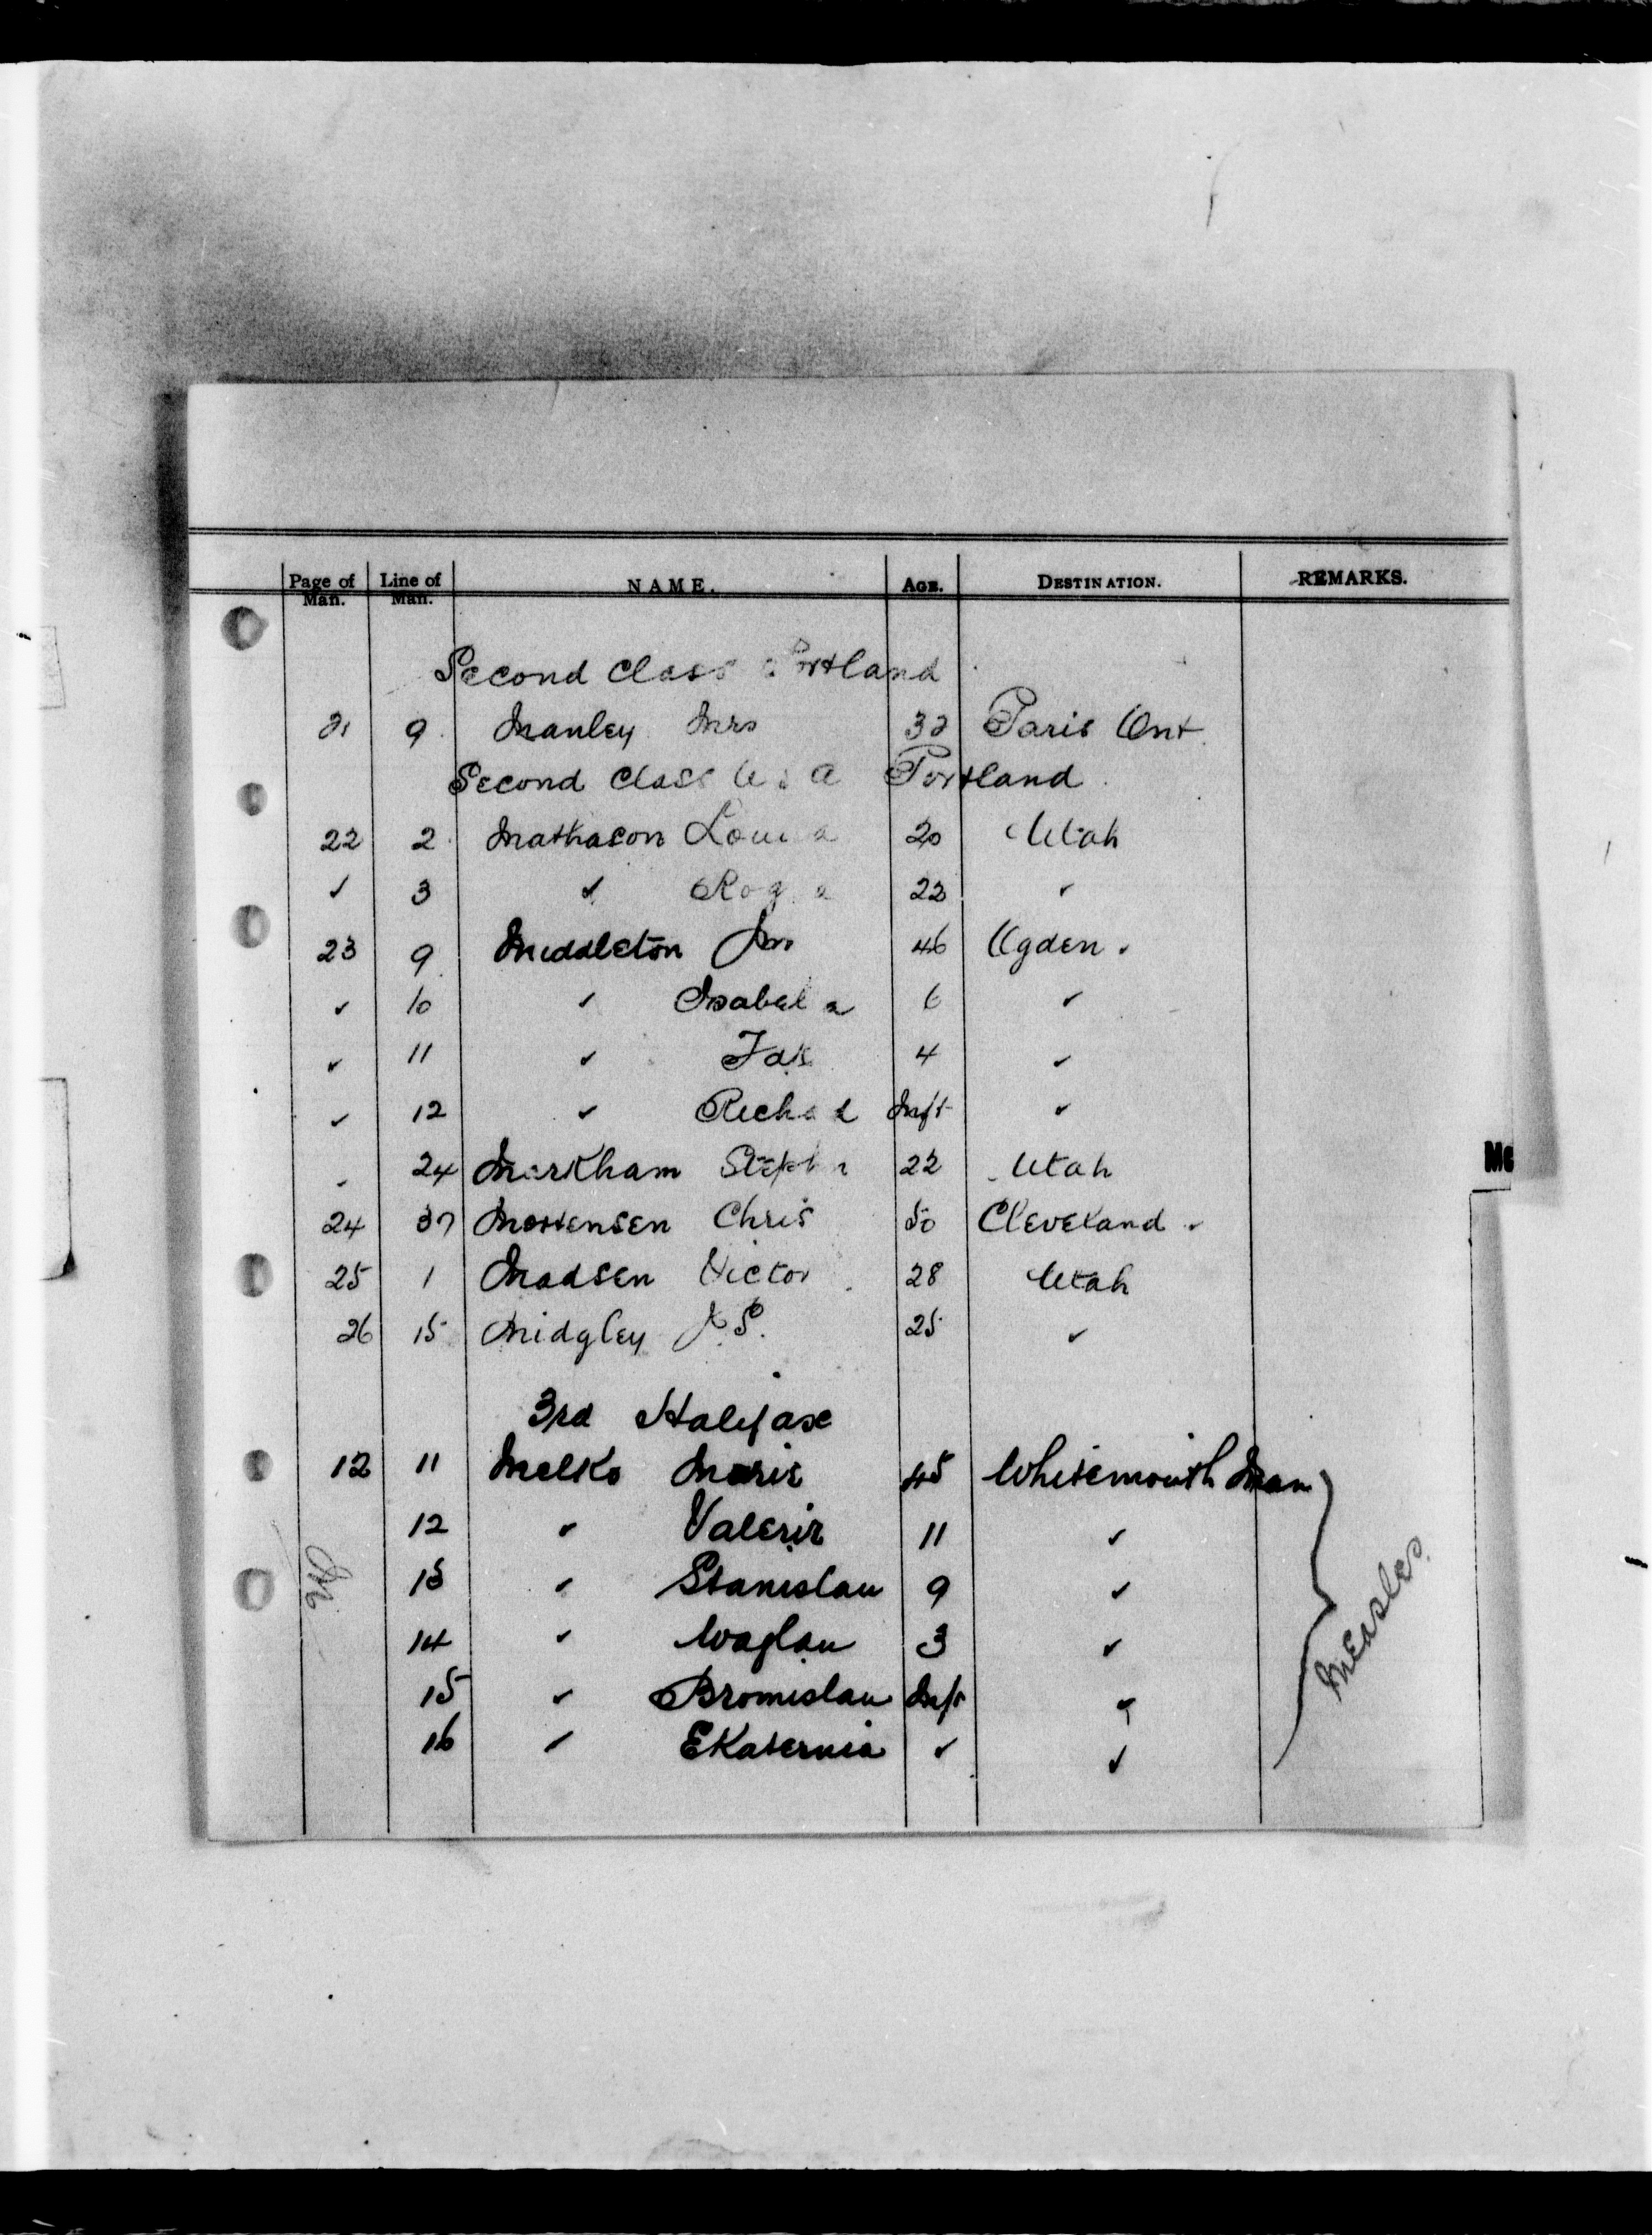 Page of Man. Line of Man. NAME. AGE. DESTINATION. REMARKS.
Second Class Portland
21 9 Manley Mrs 32 Paris Ont.
Second Class U S A Portland
22 2 Mathason 20 Utah
✓ 3 ✓ 22 ✓
23 9 Middleton 46 Ogden.
✓ 10 ✓ Isabella 6 ✓
✓ 11 ✓ 4 ✓
✓ 12 ✓ Inft ✓
24 Markham 22 Utah
24 37 Mortensen Chris 50 Cleveland
25 1 Madsen Victor 28 Utah
26 15 Midgley J. S. 25 ✓
3rd Halifax
12 11 Melko Marie 45 Whitemouth Man
12 ✓ Valerie 11 ✓
13 ✓ Stanislau 9 ✓
14 ✓ Waglau 3 ✓
15 ✓ Bromislau Inft ✓
16 ✓ Ekaternia ✓ ✓
Measles